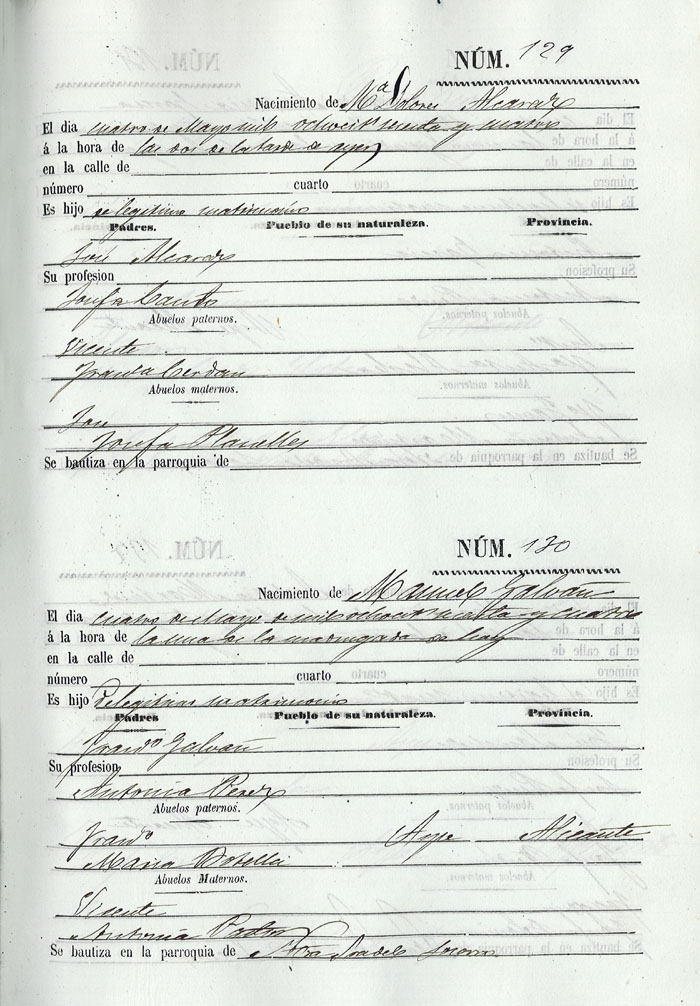 NÚM. 129
Nacimiento de Mª Dolores Alcaraz
El dia cuatro de Mayo mil ochocit sesenta y cuatro
á la hora de las dos de la tarde de ayer
en la calle de
número cuarto
Es hijo de legitimo matrimonio
Padres. Pueblo de su naturaleza. Provincia.
José Alcaraz
Su profesion
Josefa Cantó
Abuelos paternos.
Vicente
Franca Cerdan
Abuelos maternos.
José
Josefa Planelles
Se bautiza en la parroquia de
NÚM. 130
Nacimiento de Manuel Galvañ
El dia cuatro de Mayo de mil ochocit sesenta y cuatro
á la hora de la una de la madrugada de hoy
en la calle de
número cuarto
Es hijo de legitimo matrimonio
Padres Pueblo de su naturaleza. Provincia.
Franco Galvañ
Su profesion
Antonia Perez
Abuelos paternos.
Franco Aspe Alicante
Maria Botella
Abuelos Maternos.
Vicente
Antonia
Se bautiza en la parroquia de Ntra Sra del Socorro